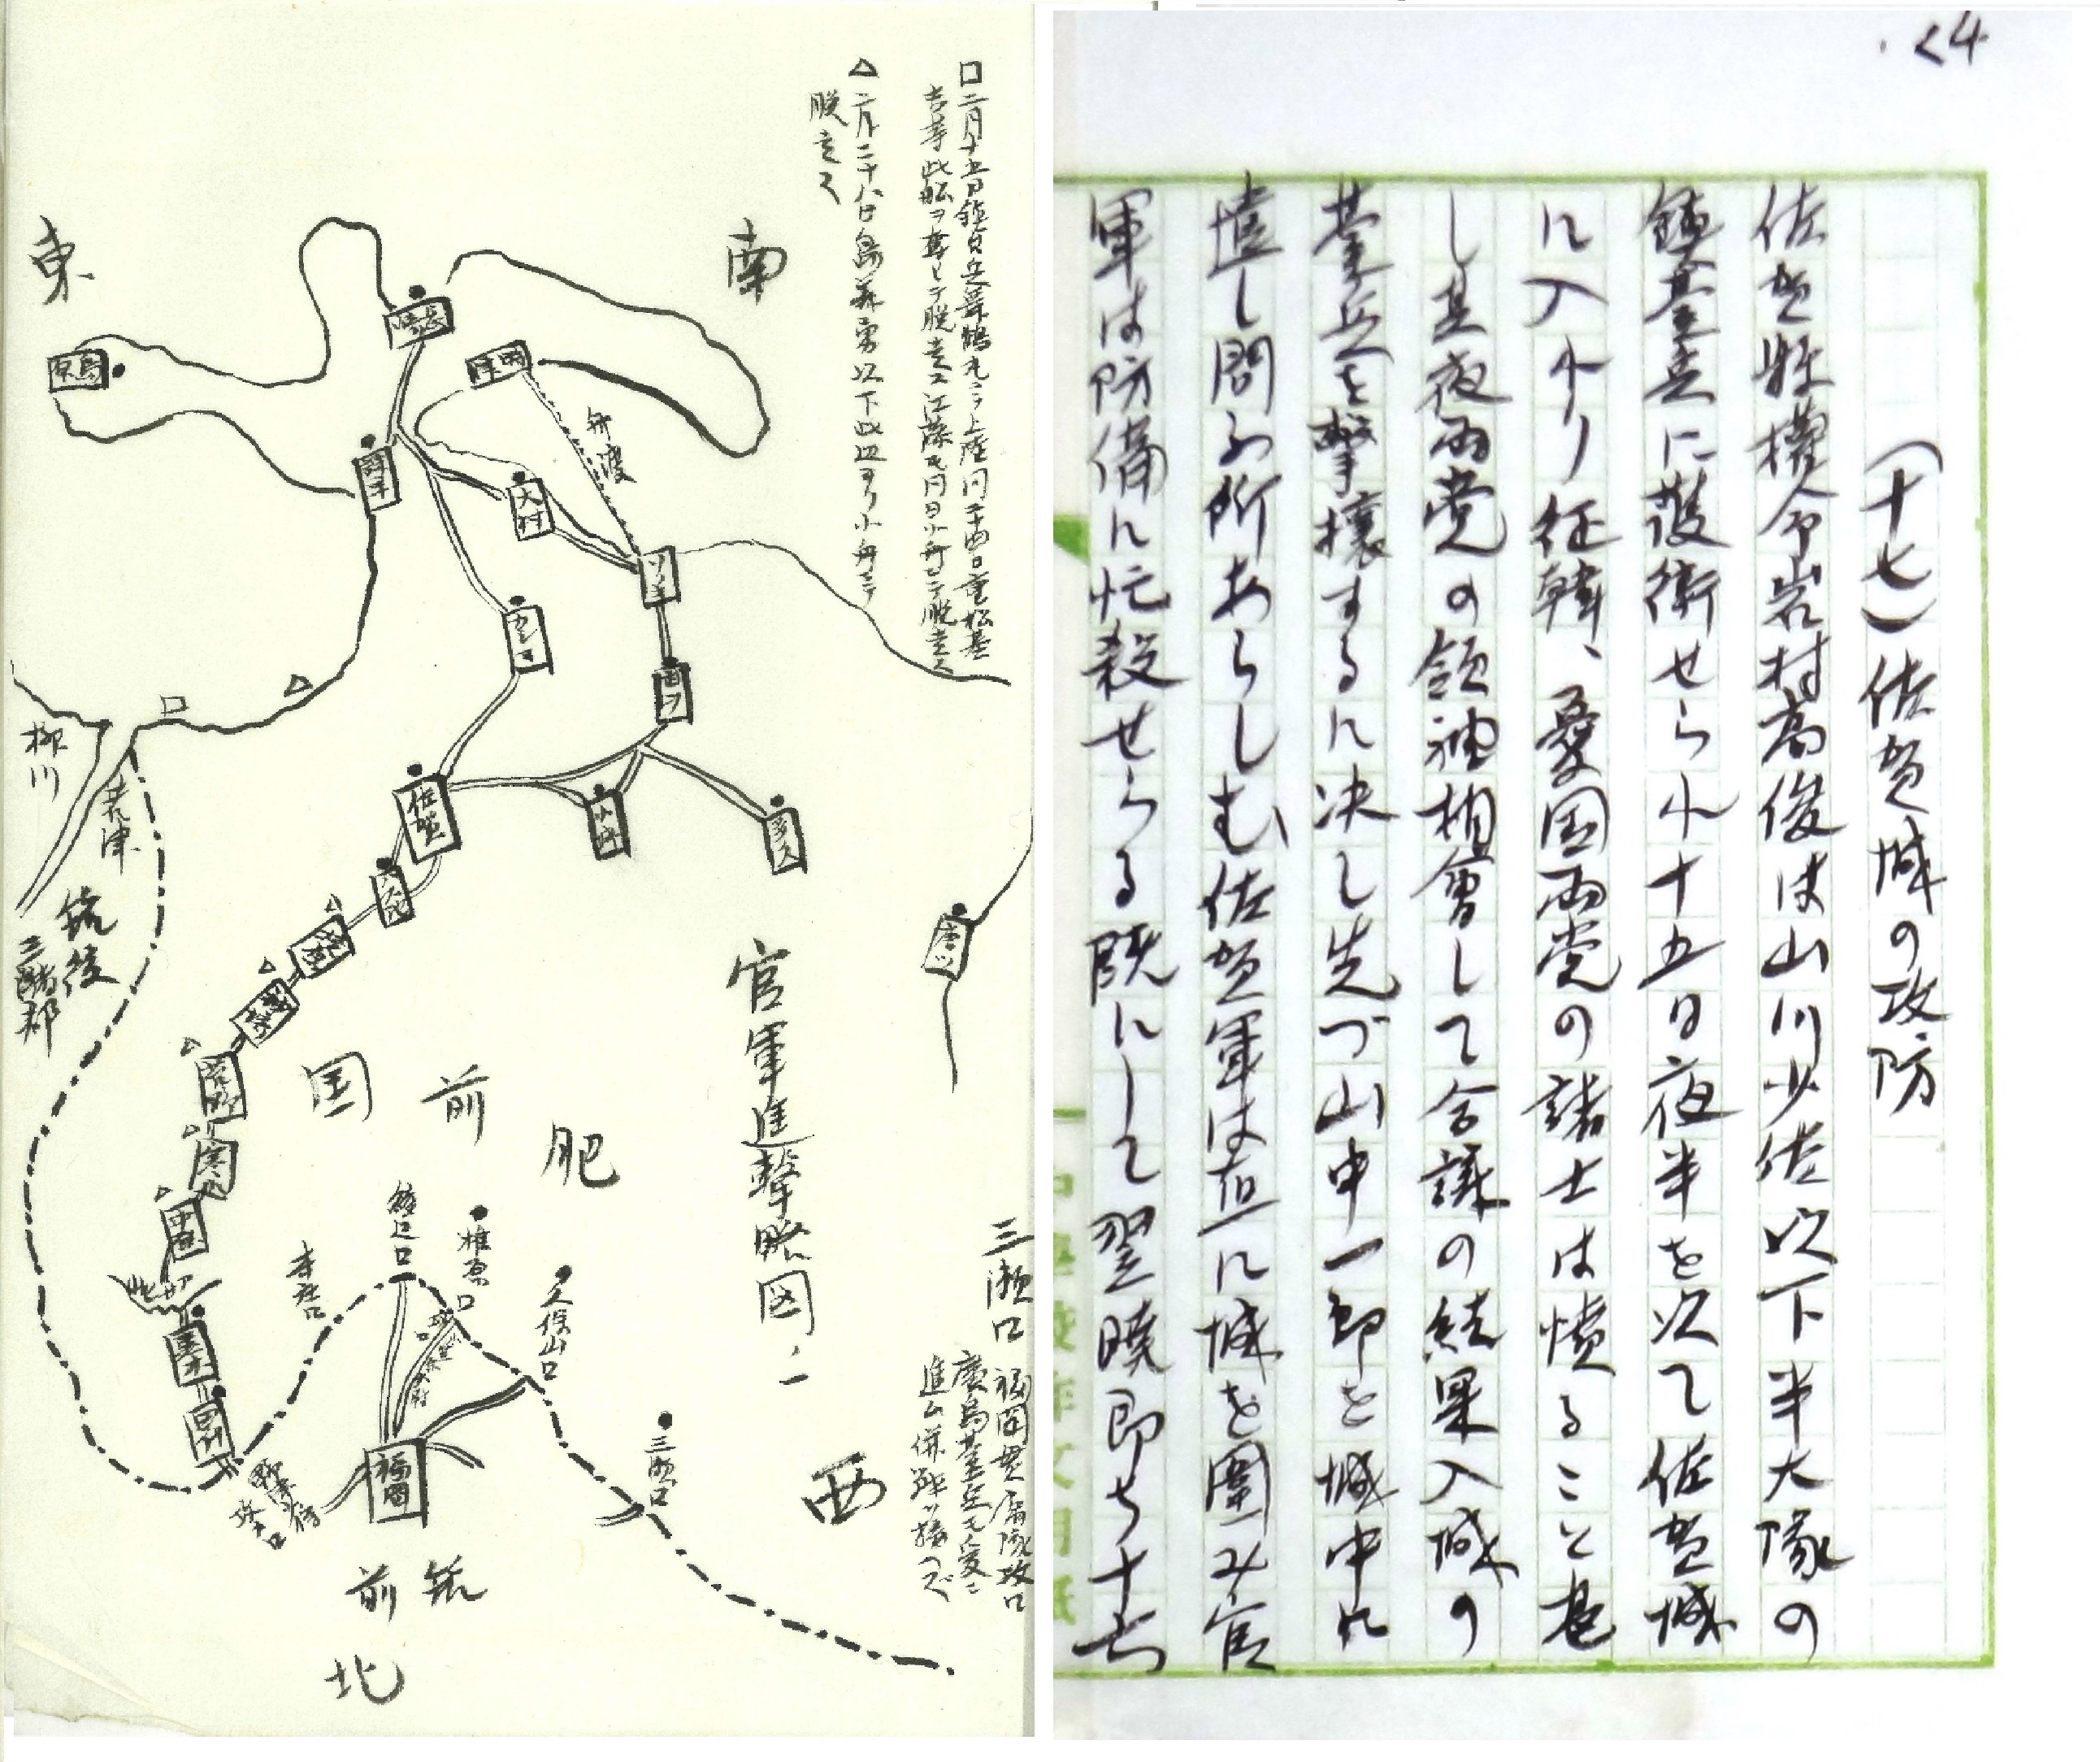 24
(十七)佐賀城の攻防
佐賀県権令岩村高俊は山川少佐以下半大隊の
鎮臺兵に護衛せられ十五日夜半を次て佐賀城
に入れり征韓、憂国両党の諸士は憤ること甚
し其夜両党の領袖相會して合議の結果入城の
臺兵を撃攘するに決し先づ山中一郎を城中に
遣し問ふ所あらしむ佐賀軍は直に城を圍み官
軍は防備に忙殺せらる既にして翌曉即ち十六
南
東
西
北
官軍進撃略図ノ一
肥前国
筑前
筑後
三潴郡
柳川
若津
長崎
島原
時津
諌早
舟渡
大村
ソノギ
佐賀
小城
多久
唐ツ
福岡
田代
三瀬口
久保山口
椎原口
□二月十五日鎮台兵舞鶴丸ニテ上陸同二十四日重松基
吉等此船ヲ奪ヒテ脱走ス江藤氏同日小舟ニテ脱走ス
△二月二十八日島義勇以下此辺ヨリ小舟ニテ
脱走ス
三瀬口
福岡貫属隊攻口
廣島臺兵モ爰ニ